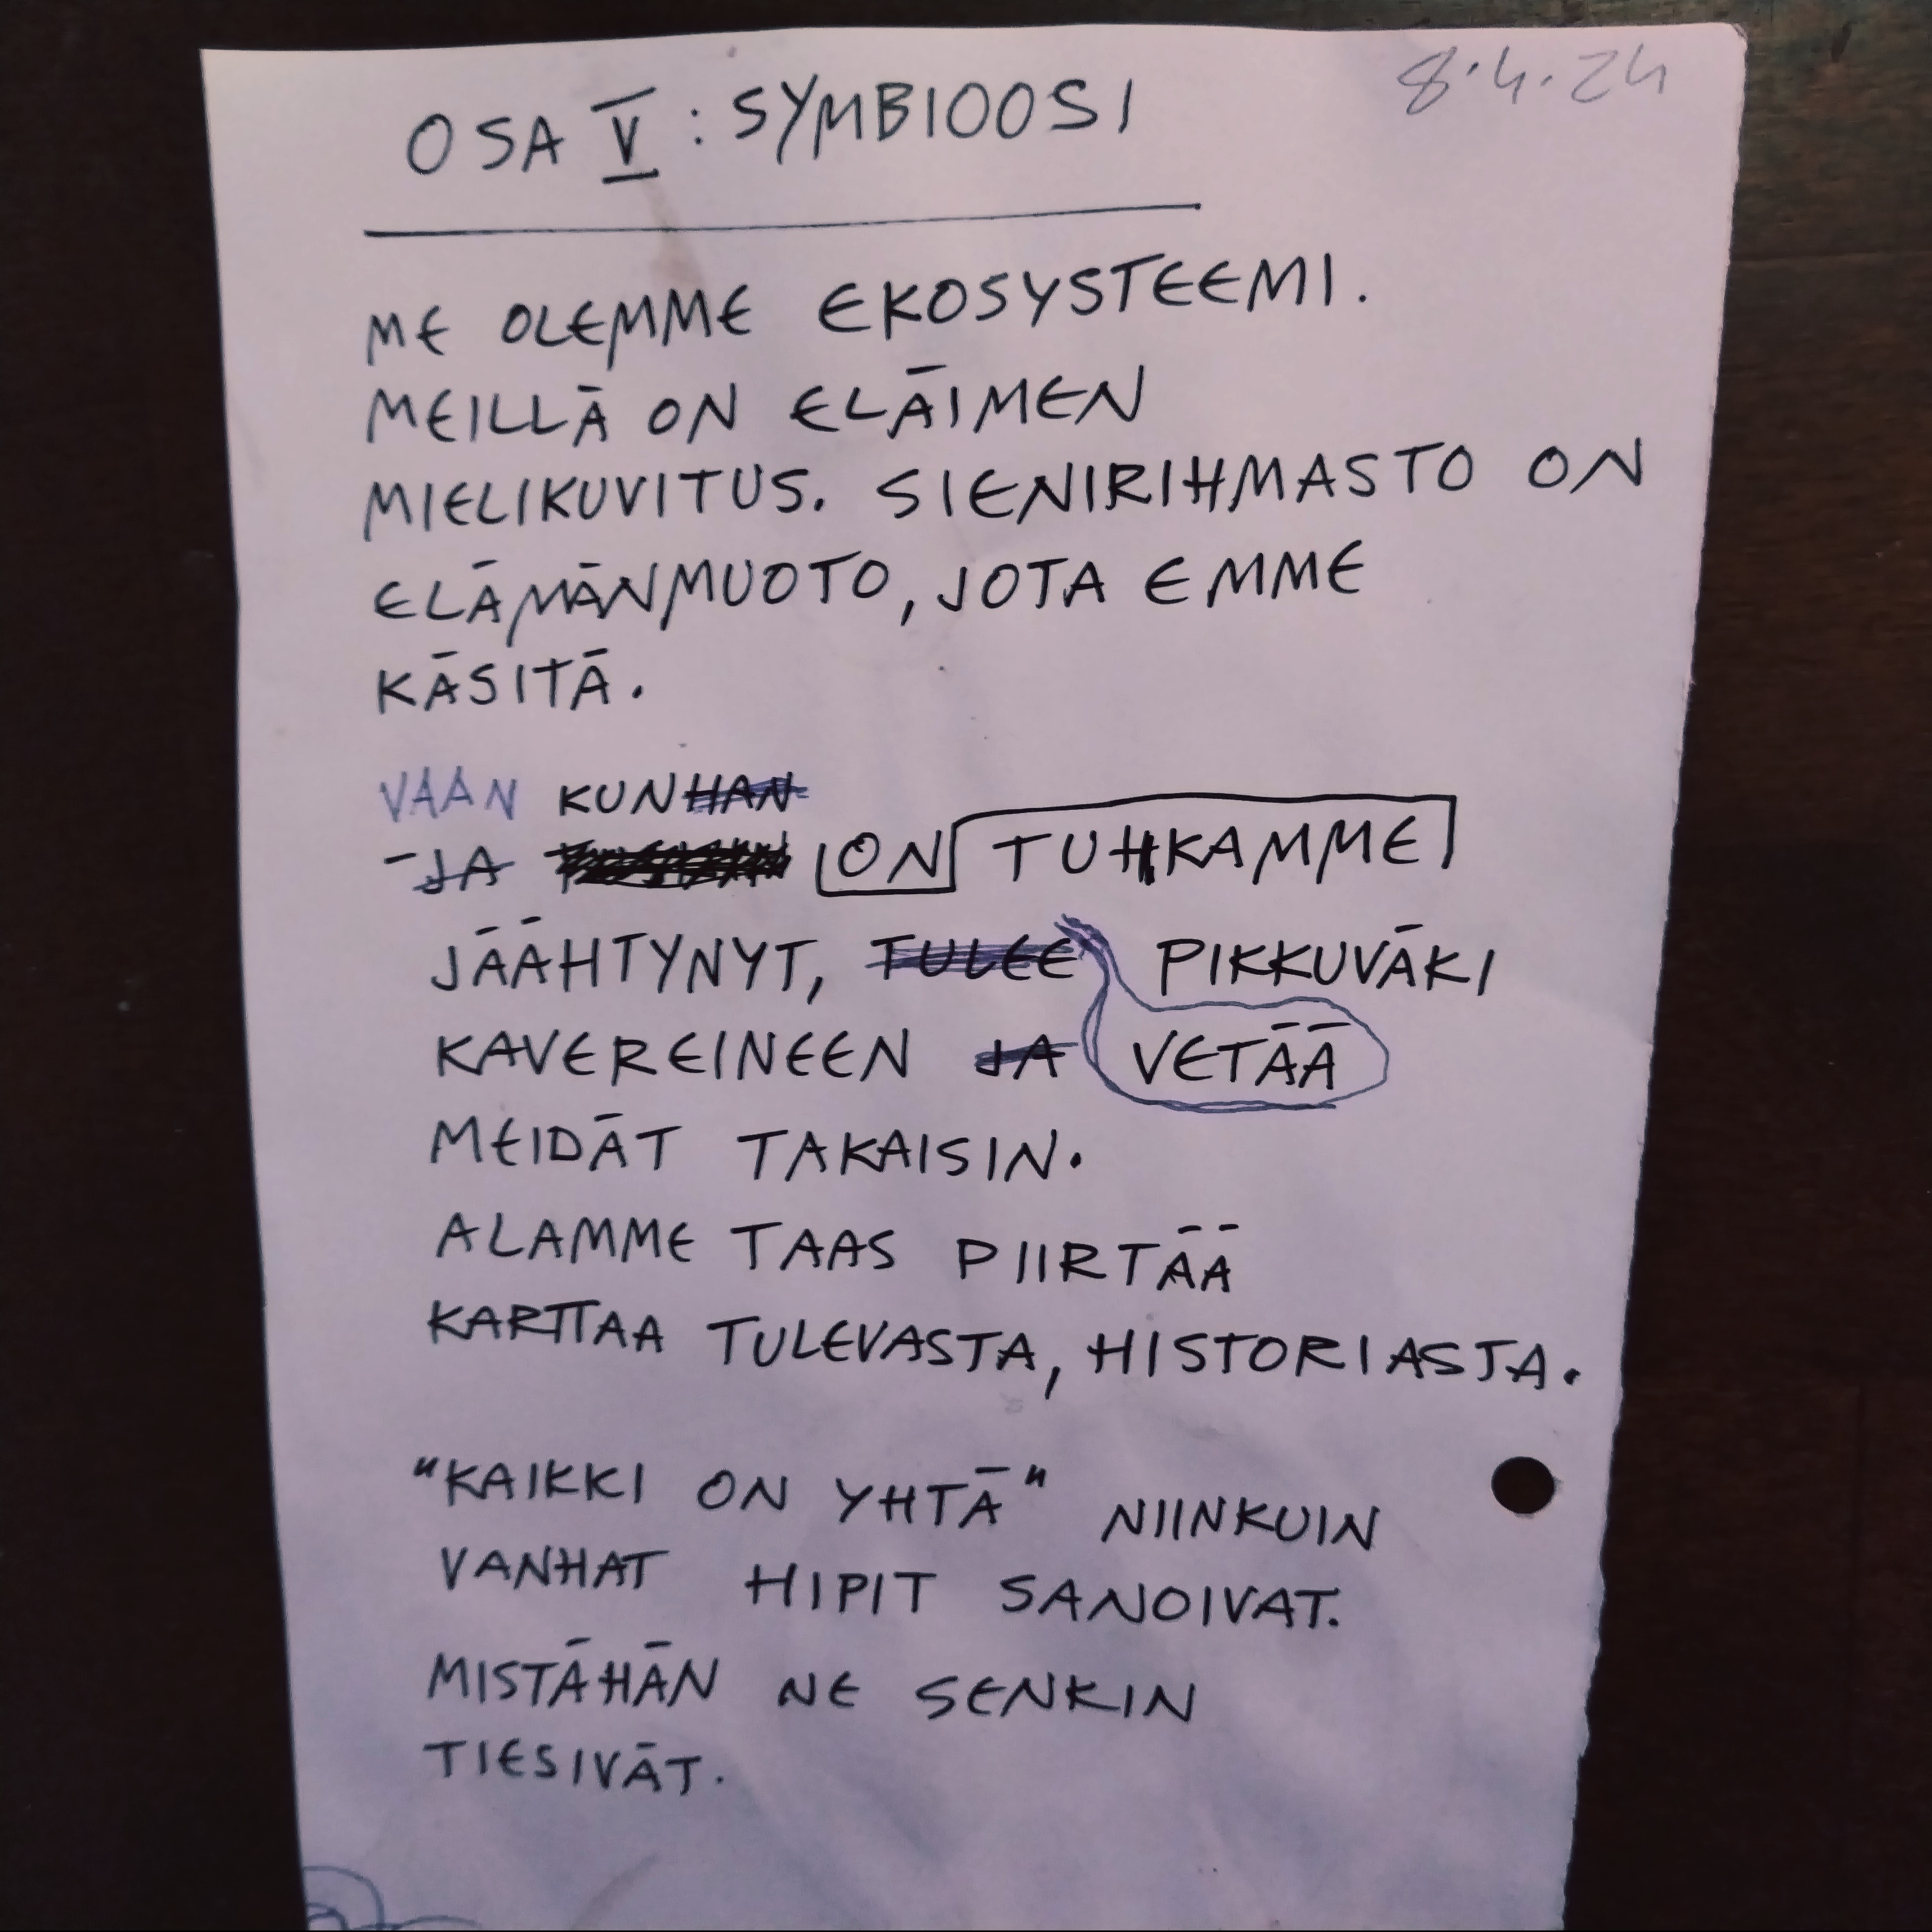 8.4.24
OSA V : SYMBIOOSI
ME OLEMME EKOSYSTEEMI.
MEILLÄ ON ELÄIMEN
MIELIKUVITUS. SIENIRIHMASTO ON
ELÄMÄNMUOTO, JOTA EMME
KÄSITÄ.
VAAN KUNHAN
JA ON TUHKAMME
JÄÄHTYNYT, TULEE PIKKUVÄKI
KAVEREINEEN JA VETÄÄ
MEIDÄT TAKAISIN.
ALAMME TAAS PIIRTÄÄ
KARTTAA TULEVASTA, HISTORIASTA.
"KAIKKI ON YHTÄ" NIINKUIN
VANHAT HIPIT SANOIVAT.
MISTÄHÄN NE SENKIN
TIESIVÄT.